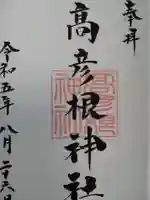 奉拝
高彦根神社
令和五年八月二十六日